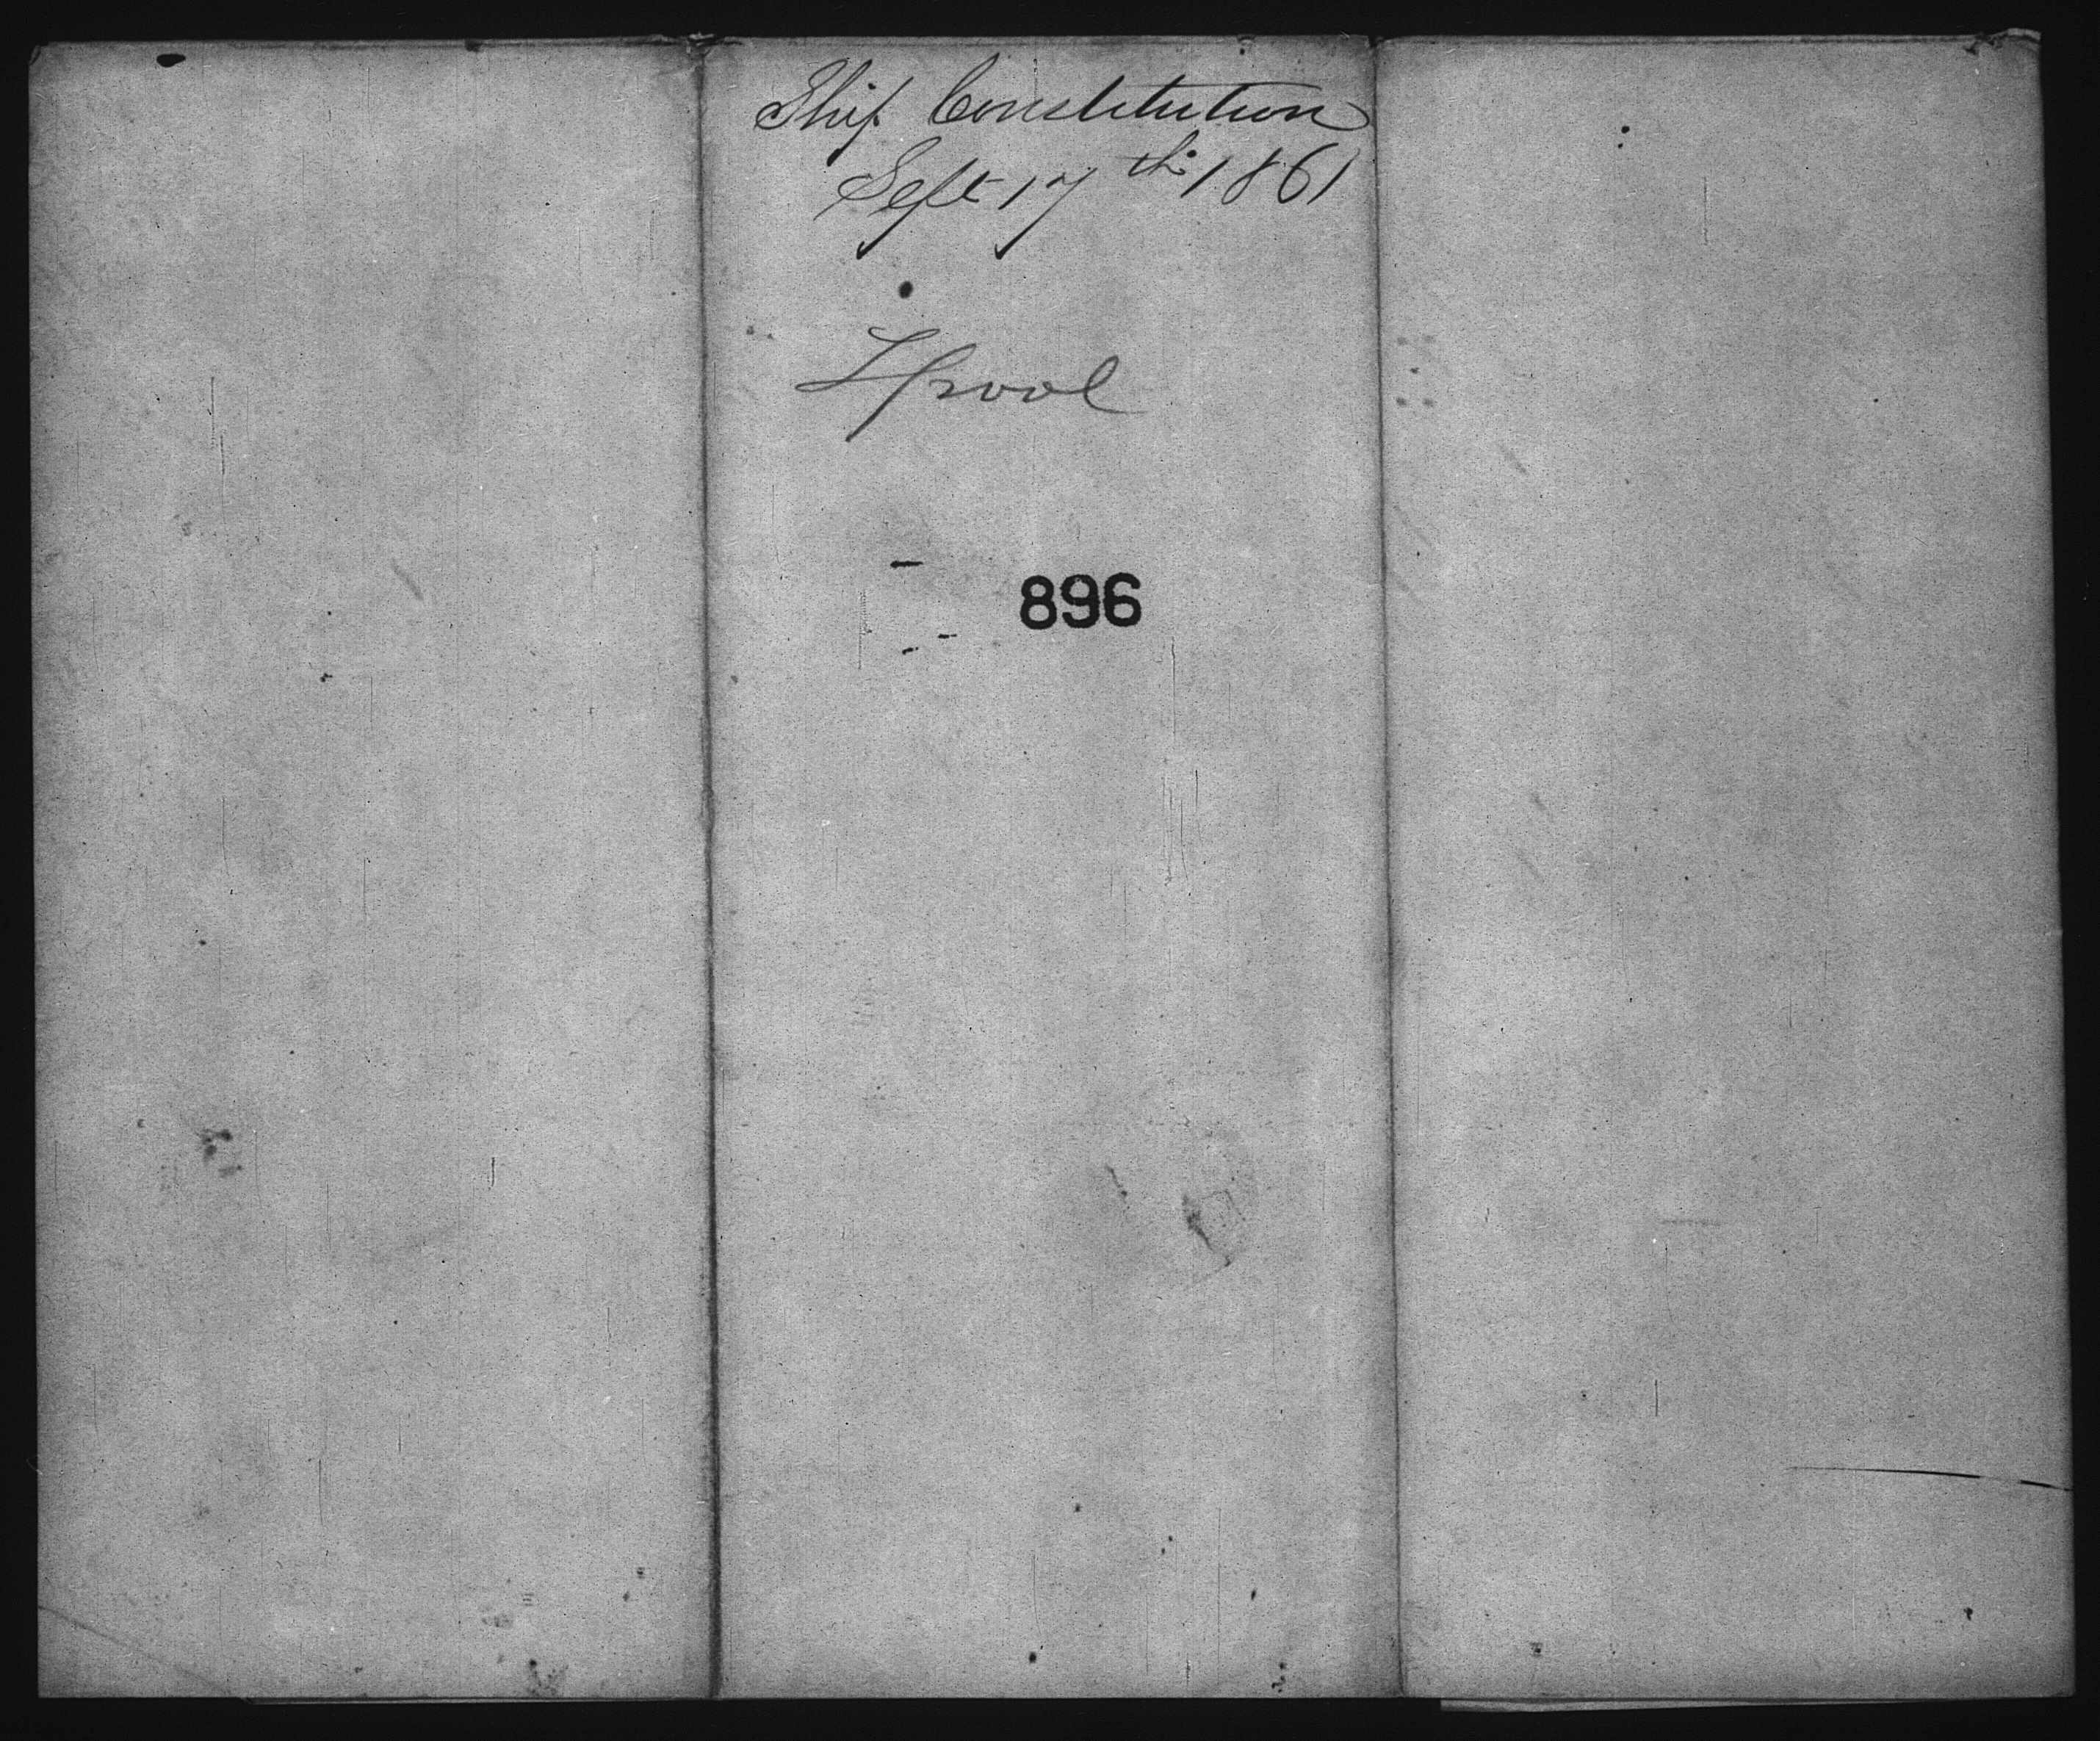 Ship Constitution
Sept 17th 1861
Lpool
896